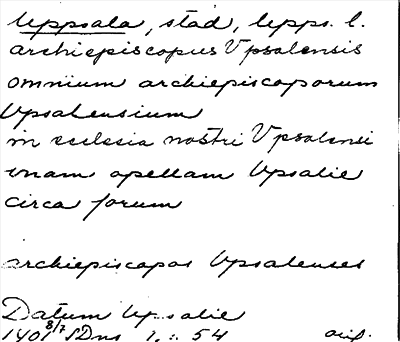 Uppsala, stad, Upps. l.
archiepiscopus Upsalensis
omnium archiepiscoporum
Upsalensium
in ecclesia nostri Upsalensi
unam apellam Upsalie
circa forum
archiepiscopos Upsalenses
Datum Upsalie
1401 8/7 SDns 1, : 54 orig.